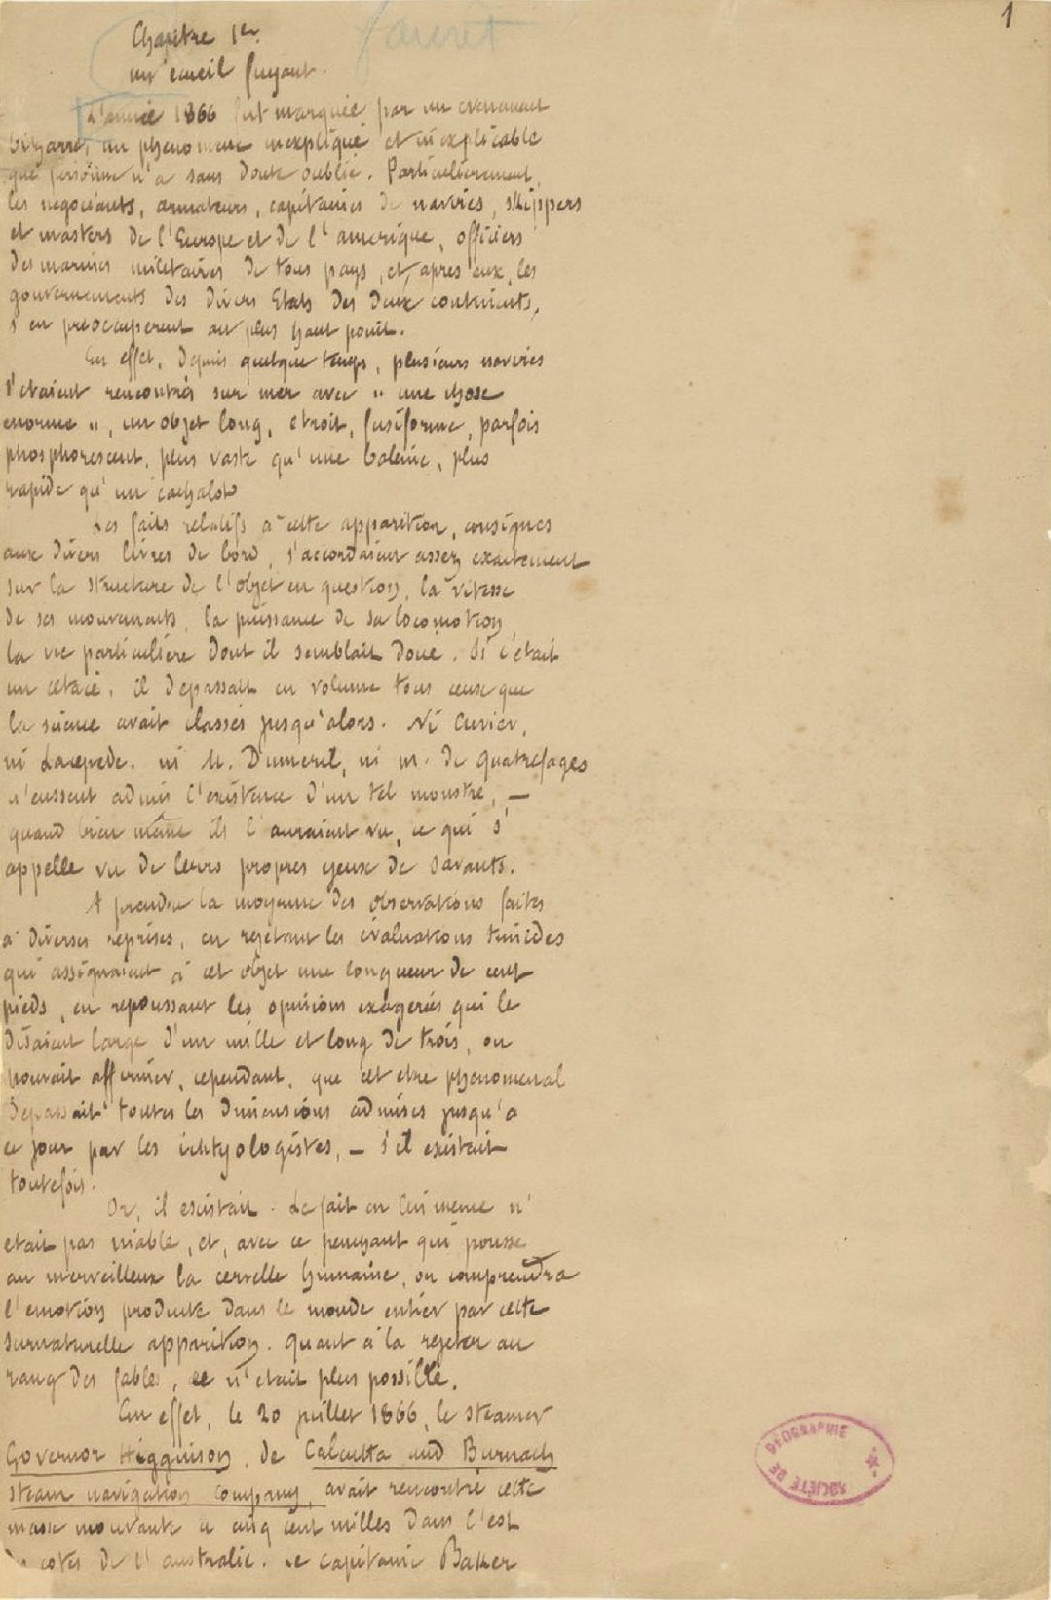 1
Chapitre 1er.
un ecueil fuyant.
L'année 1866 fut marquée par un evenement
bizarre, un phenomene inexpliqué et inexplicable
que personne n'a sans doute oublié. Particulierement,
les negociants, armateurs, capitaines de navires, skippers
et masters de l'Europe et de l'amerique, officiers
des marines militaires de tous pays, et, apres eux, les
gouvernements des divers Etats des deux continents,
s'en préoccuperent au plus haut point.
En effet, depuis quelque temps, plusieurs navires
s'etaient rencontrés sur mer avec " une chose
enorme ", un objet long, etroit, fusiforme, parfois
phosphorescent, plus vaste qu'une baleine, plus
rapide qu'un cachalot
Les faits relatifs à cette apparition, consignes
aux divers livres de bord, s'accordaient assez exactement
sur la structure de l'objet en question, la vitesse
de ses mouvements, la puissance de sa locomotion
la vie particulière dont il semblait doué. Si c'était
un cetacé, il depassait en volume tous ceux que
la science avait classés jusqu'alors. Ni Cuvier,
ni Lacepede, ni M. Dumeril, ni m. de Quatrefages
n'eussent admis l'existence d'un tel monstre, —
quand bien même ils l'auraient vu, ce qui s'
appelle vu de leurs propres yeux de savants.
A prendre la moyenne des observations faites
à diverses reprises, en rejetant les évaluations timides
qui assignaient à cet objet une longueur de cent
pieds, en repoussant les opinions exagerées qui le
disaient large d'un mille et long de trois, on
pouvait affirmer, cependant, que cet etre phenomenal
depassait toutes les dimensions admises jusqu'a
ce jour par les ichtyologistes, — s'il existait
toutefois.
Or, il existait. Le fait en lui meme n'
etait pas niable, et, avec ce penchant qui pousse
au merveilleux la cervelle humaine, on comprendra
l'emotion produite dans le monde entier par cette
surnaturelle apparition. Quant à la rejeter au
rang des fables, ce n'etait plus possible.
En effet, le 20 juillet 1866, le steamer
Governor Higginson, de Calcutta and Burnach
steam navigation Company, avait rencontré cette
masse mouvante a cinq cent milles dans l'est
cotes de l'australie. Le capitaine Baker
SOCIÉTÉ DE GÉOGRAPHIE